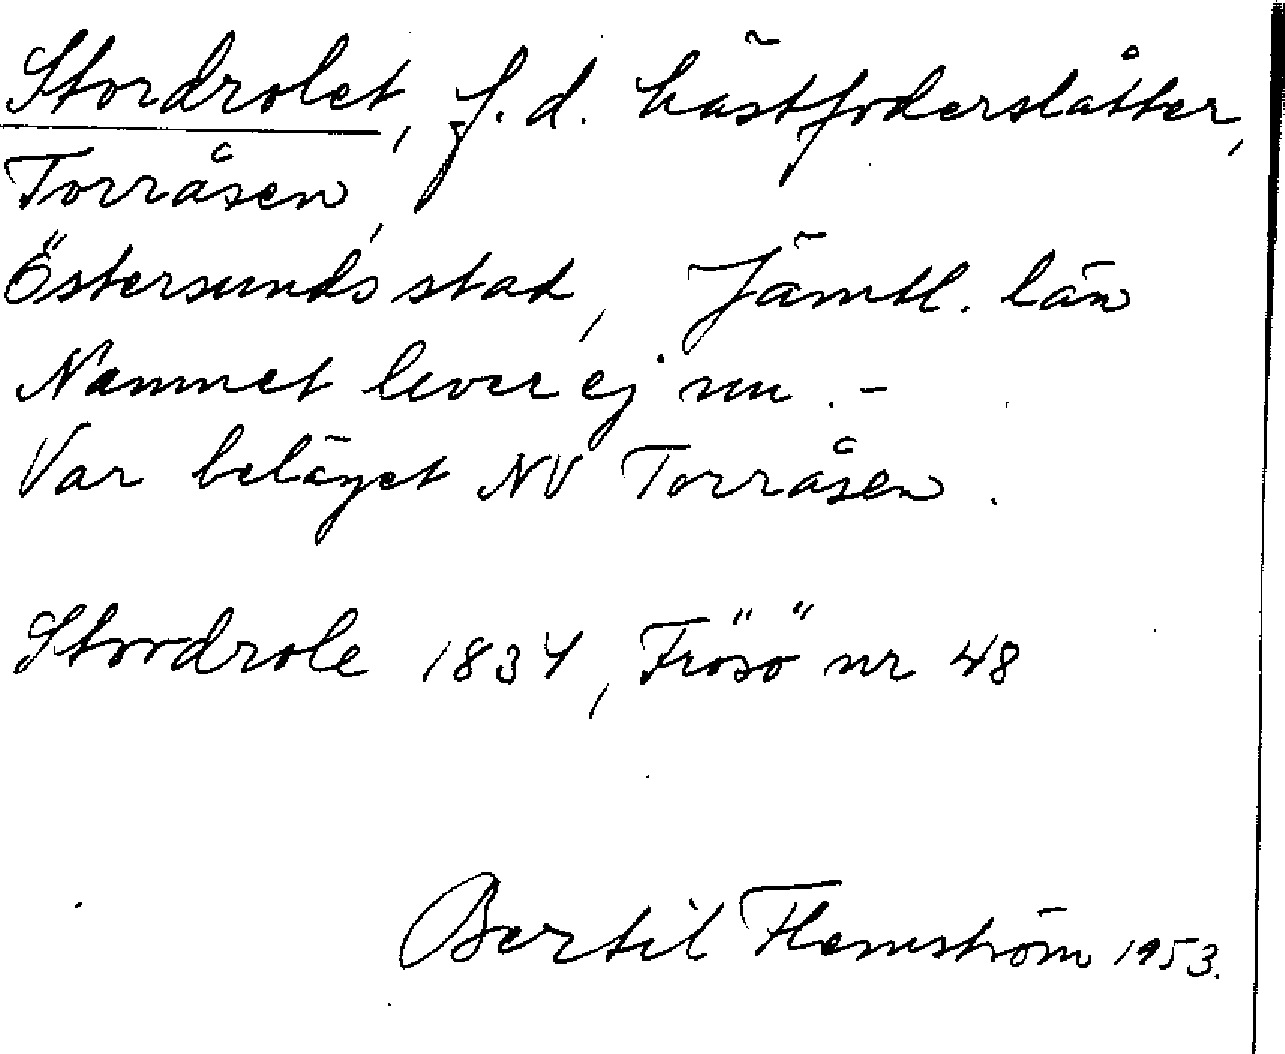 Stordrolet, f.d. hästfoderslåtter,
Torråsen,
Östersunds stad, Jämtl. län
Namnet lever ej nu. –
Var beläget NV Torråsen.
Stordrole 1834, Frösö nr 48
Bertil Flemström 1953.